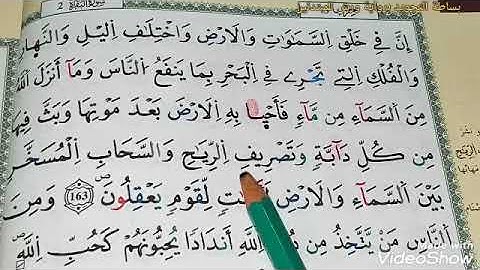 بساطة التجويد برواية ورش
سورة البقرة 2
إِنَّ فِي خَلْقِ اِ۬لسَّمَٰوَٰتِ وَالَارْضِ وَاخْتِلَٰفِ اِ۬ليْلِ وَالنَّهارِ
وَالْفُلْكِ اِ۬لتِے تَجْرِے فِے اِ۬لْبَحْرِ بِمَا يَنفَعُ اُ۬لنَّاسَ وَمَآ أَنزَلَ اَ۬للَّهُ
مِنَ اَ۬لسَّمَآءِ مِن مَّآءٖ فَأَحْيا بِهِ اِ۬لَارْضَ بَعْدَ مَوْتِهَا وَبَثَّ فِيهَا
مِن كُلِّ دَآبَّةٖ وَتَصْرِيفِ اِ۬لرِّيَٰحِ وَالسَّحَابِ اِ۬لْمُسَخَّرِ
بَيْنَ اَ۬لسَّمَآءِ وَالَارْضِ لِّقَوْمٖ يَعْقِلُونَۖ 163 وَمِنَ
اَ۬لنَّاسِ مَنْ يَّتَّخِذُ مِن دُونِ اِ۬للَّهِ أَندَادا يُحِبُّونَهُمْ كَحُبِّ اِ۬للَّهِۖ
Made with
VideoShow